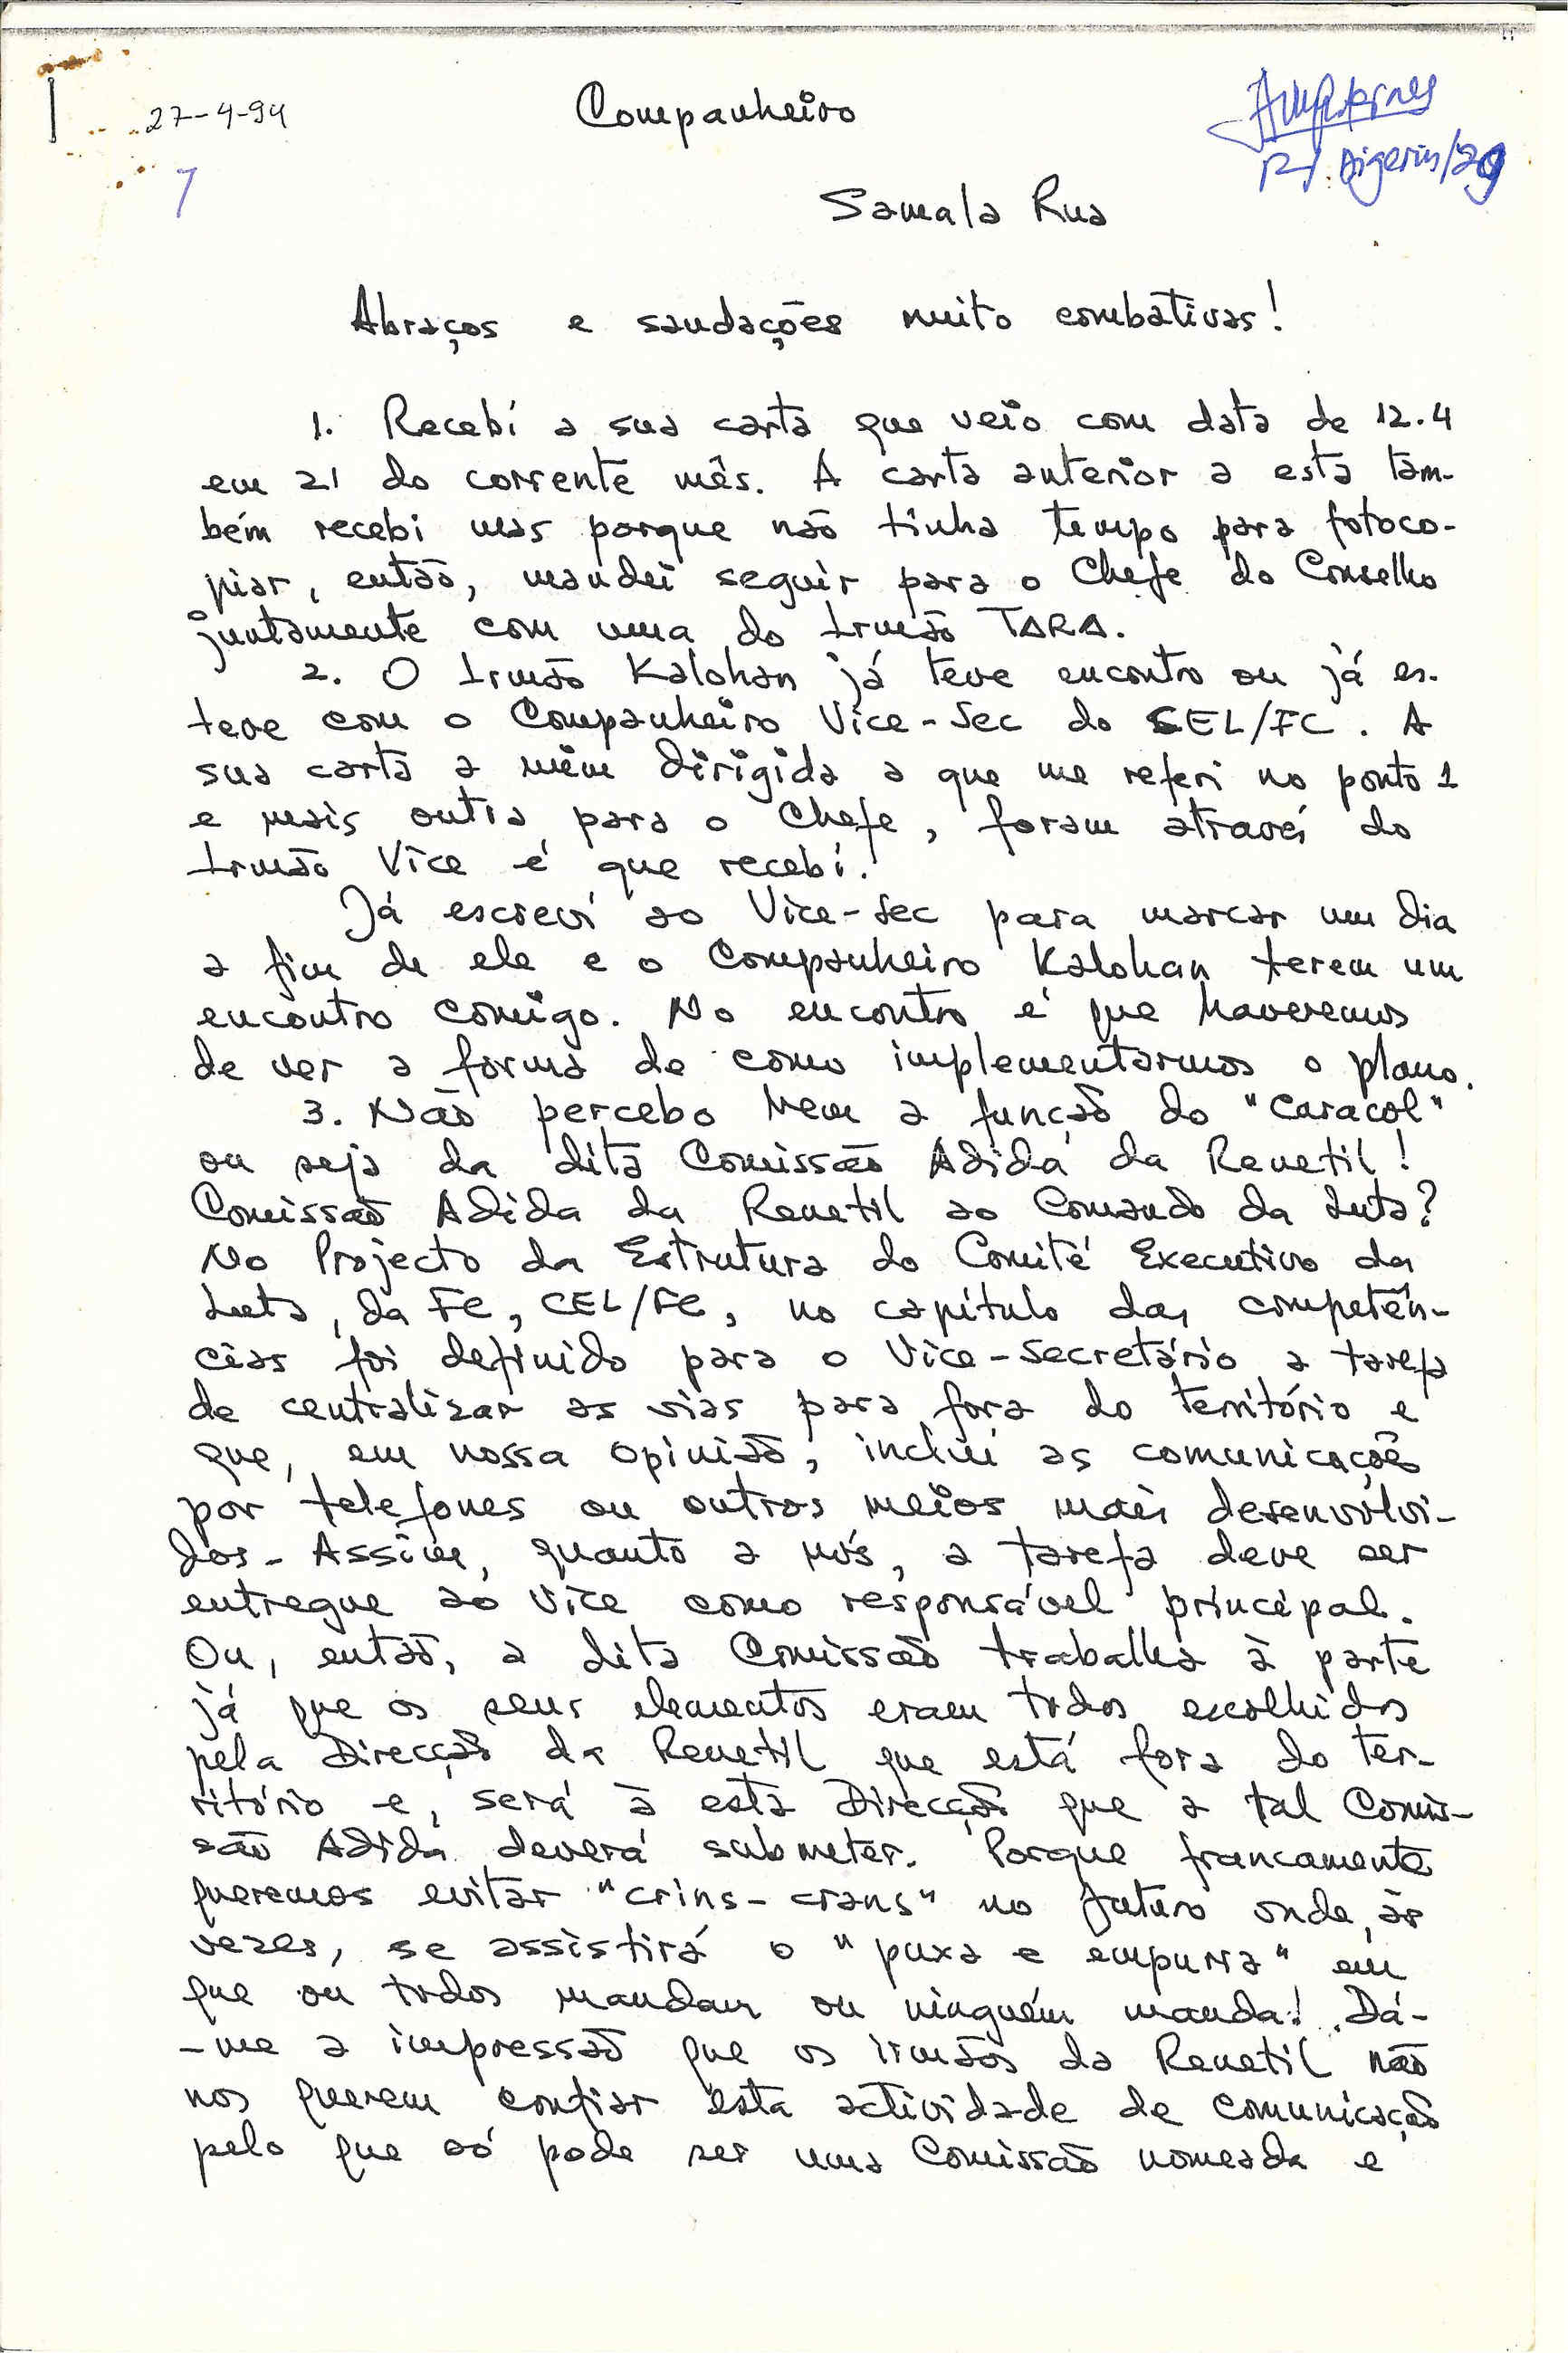 27-4-94
Companheiro
Samala Rua
Abraços e saudações muito combativas!
1. Recebí a sua carta que veio com data de 12.4
em 21 do corrente mês. A carta anterior a esta tam-
bém recebi mas porque não tinha tempo para fotoco-
piar, então, mandei seguir para o Chefe do Conselho
juntamente com uma do Irmão TARA.
2. O Irmão Kalohan já teve encontro ou já es-
teve com o Companheiro Vice-Sec do CEL/FC. A
sua carta a mim dirigida a que me referi no ponto 1
e mais outra para o Chefe, foram através do
Irmão Vice é que recebi.
Já escreví ao Vice-Sec para marcar um dia
a fim de ele e o Companheiro Kalohan terem um
encontro comigo. No encontro é que haveremos
de ver a forma de como implementarmos o plano.
3. Não percebo bem a função do "Caracol"
ou seja da dita Comissão Adida da Renetil!
Comissão Adida da Renetil ao Comando da Luta?
No Projecto da Estrutura do Comité Executivo da
Luta, da FC, CEL/FC, no capítulo das competên-
cias foi definido para o Vice-Secretário a tarefa
de centralizar as vias para fora do território e
que, em nossa opinião, inclui as comunicações
por telefones ou outros meios mais desenvolvi-
dos. Assim, quanto a nós, a tarefa deve ser
entregue ao Vice como responsável principal.
Ou, então, a dita Comissão trabalha à parte
já que os seus elementos eram todos escolhidos
pela Direcção da Renetil que está fora do ter-
ritório e, será à esta Direcção que a tal Comis-
são Adida deverá submeter. Porque francamente
queremos evitar "crins-crans" no futuro onde, às
vezes, se assistirá o "puxa e empurra" em
que ou todos mandam ou ninguém manda! Dá-
-me a impressão que os irmãos da Renetil não
nos querem confiar esta actividade de comunicação
pelo que só pode ser uma Comissão nomeada e